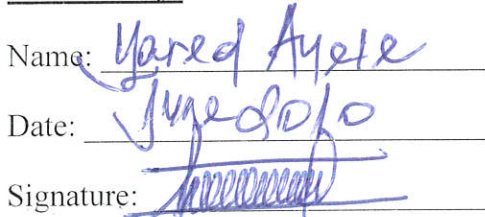 Name: Yared Ayele
Date: June 2010
Signature: